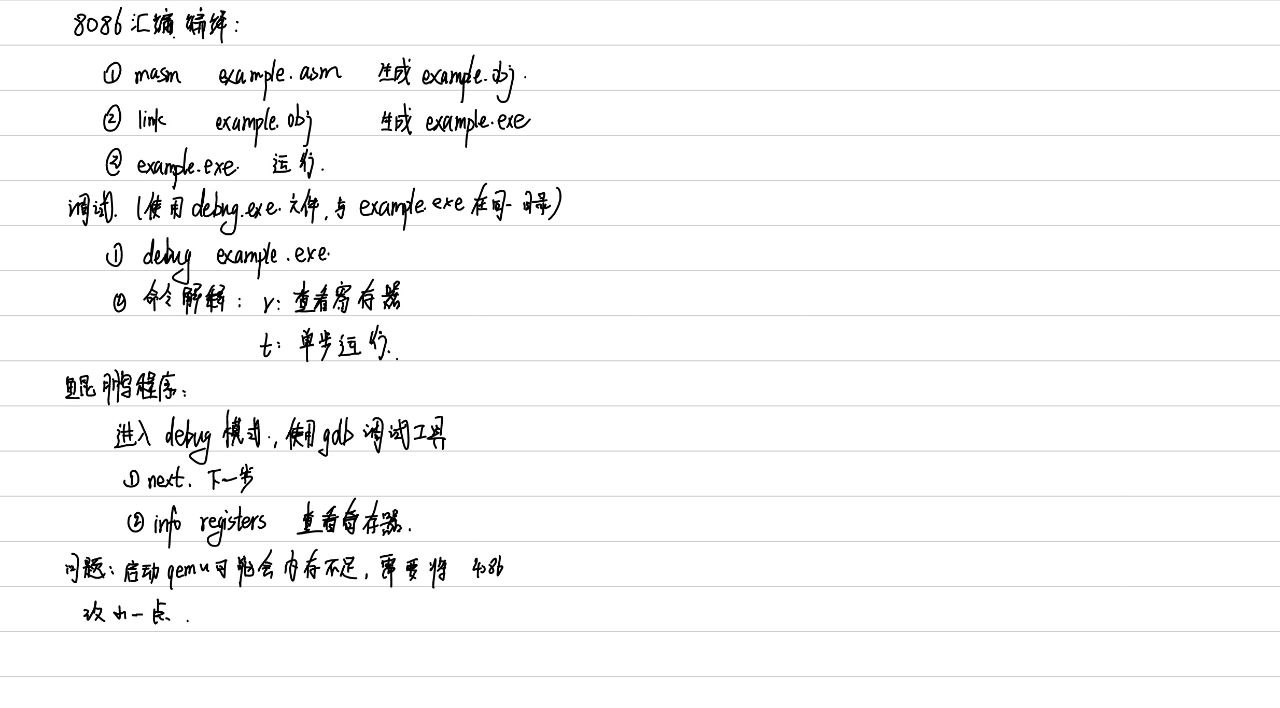 8086汇编编译:
① masm example.asm 生成 example.obj.
② link example.obj 生成 example.exe
③ example.exe. 运行.
调试.(使用debug.exe.文件,与example.exe在同一目录)
① debug example.exe.
② 命令解释: r: 查看寄存器
t: 单步运行.
鲲鹏程序:
进入debug模式,使用gdb调试工具
① next. 下一步
② info registers 查看寄存器.
问题:启动qemu可能会内存不足,需要将 4086
改小一点.